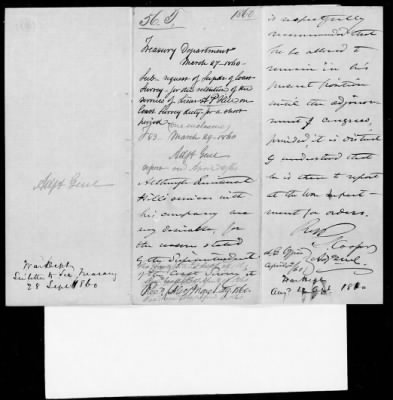 Adjt Genl
War Dept
Sec. Treasury
28 Sept 1860
36. T. 1860
Treasury Department
March 27. 1860
Survey - for the retention of the
services of Lieut A P Hill on
Coast Survey duty for a short
period
one enclosure
March 29. 1860
Adjt Genl
report
Although Lieutenant
Hill's services with
his company are
very desirable, for
the reasons stated
by the Superintendent
of the Coast Survey, it
is respectfully
recommended that
he be allowed to
remain in his
present position
until the adjourn
ment of Congress,
provided, it is distinctly
understood that
he is then to report
at the War Depart-
ment for orders.
S. Cooper
Adj. Genl.
A. G. Office
War Dept